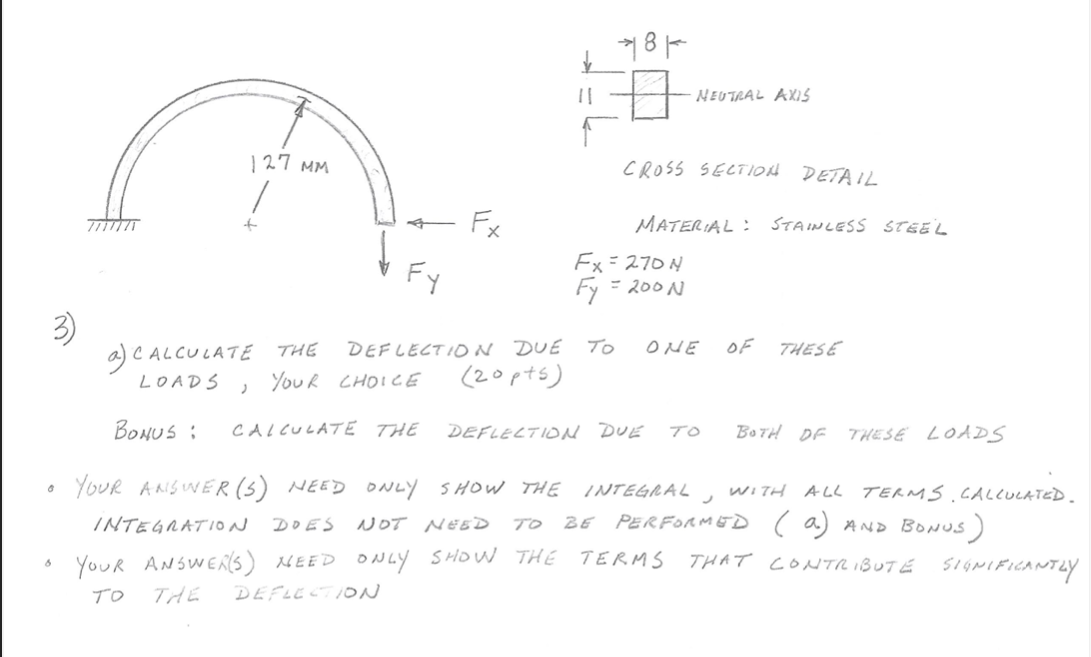 8
11
NEUTRAL AXIS
127 MM
CROSS SECTION DETAIL
Fx
MATERIAL: STAINLESS STEEL
Fy
Fx = 270N
Fy = 200N
3)
a) CALCULATE THE DEFLECTION DUE TO ONE OF THESE
LOADS, YOUR CHOICE (20pts)
BONUS: CALCULATE THE DEFLECTION DUE TO BOTH OF THESE LOADS
• YOUR ANSWER(S) NEED ONLY SHOW THE INTEGRAL, WITH ALL TERMS CALCULATED.
INTEGRATION DOES NOT NEED TO BE PERFORMED (a) AND BONUS)
• YOUR ANSWER(S) NEED ONLY SHOW THE TERMS THAT CONTRIBUTE SIGNIFICANTLY
TO THE DEFLECTION